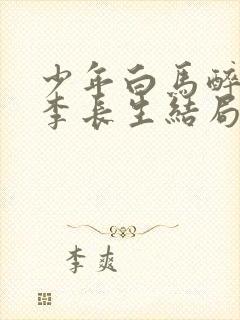 少年白馬醉
李長生結局
李爽